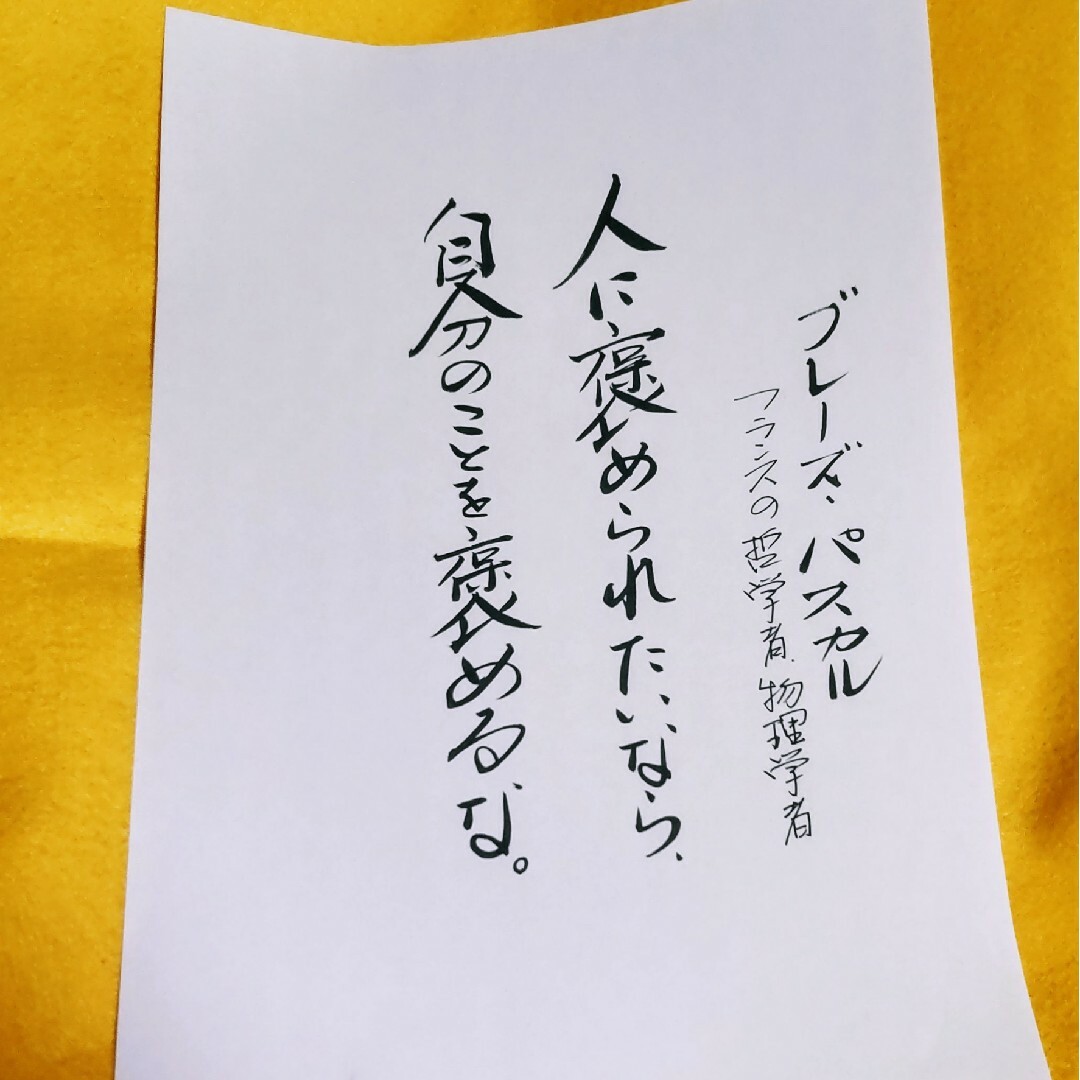 ブレーズ・パスカル
フランスの哲学者、物理学者
人に褒められたいなら、
自分のことを褒めるな。